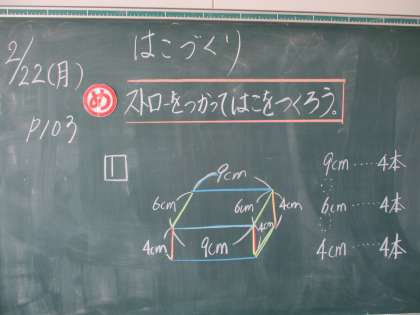 はこづくり
2/22(月)
P103
め ストローをつかってはこをつくろう。
1
9cm
6cm 6cm 4cm
4cm 9cm 4cm
9cm……4本
6cm……4本
4cm……4本